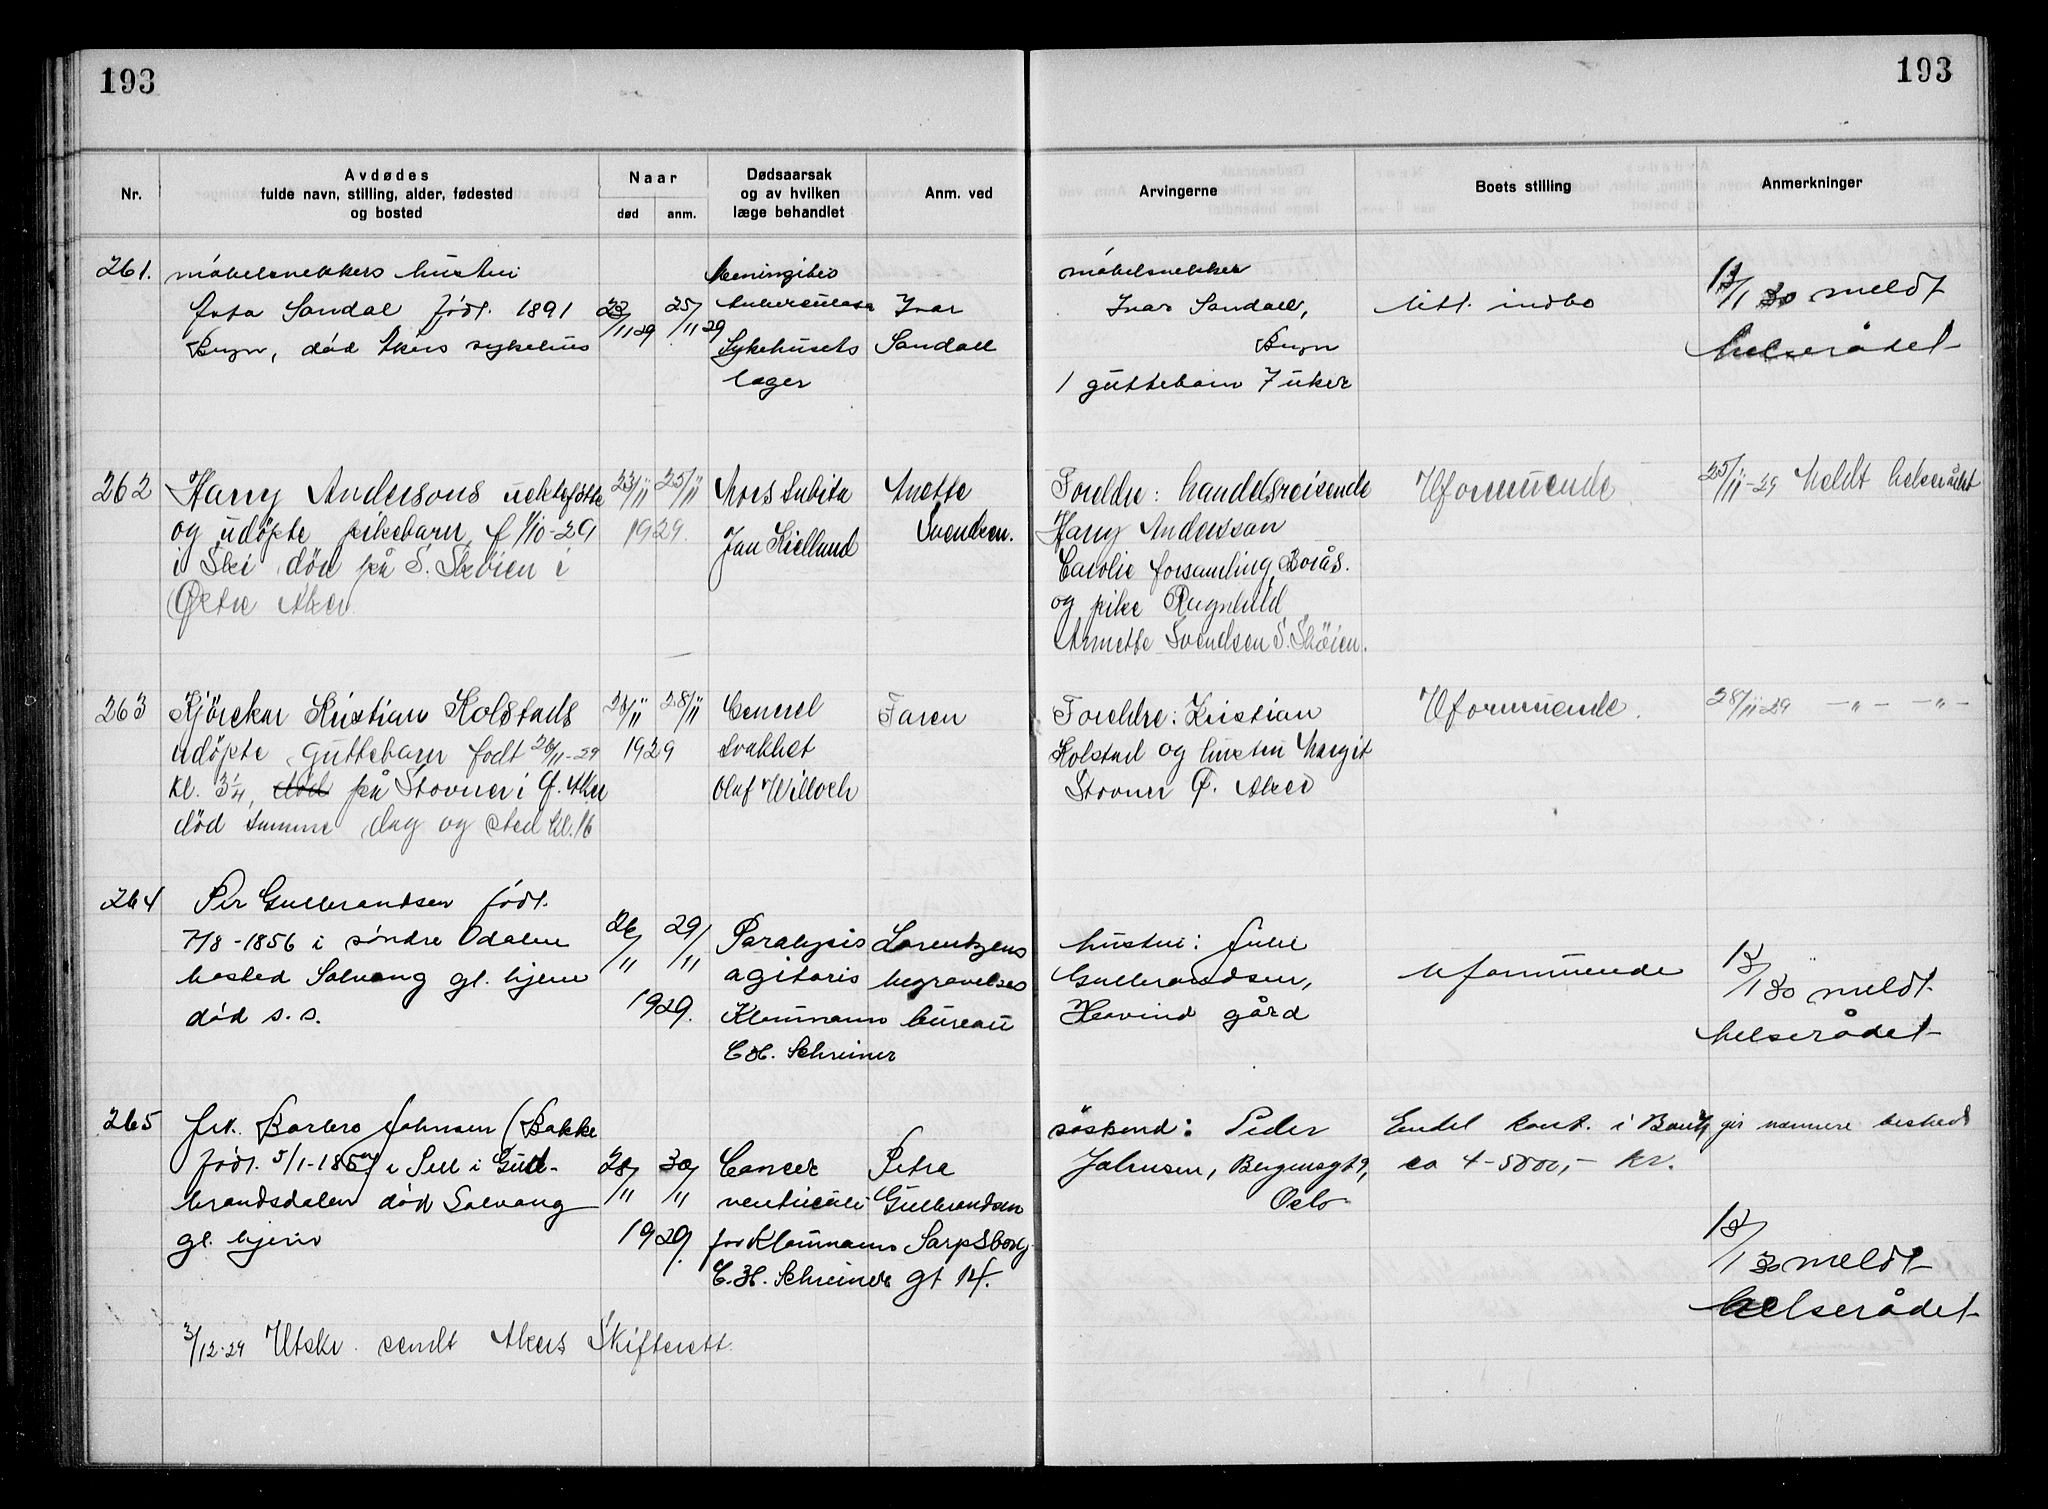 193
193
Nr.
Avdødes
fulde navn, stilling, alder, fødested
og bosted
Naar
død
anm.
Dødsaarsak
og av hvilken
læge behandlet
Anm. ved
Arvingerne
Boets stilling
Anmerkninger
261.
møbelsnekkers hustru
Sandal født. 1891
Bryn, død Akers sykehus
23/11 29
25/11 29
Meningitis
tuberculosa
Sykehusets
læger
Ivar
Sandall
møbelsnekker
Ivar Sandall,
Bryn
1 guttebarn 7 uker
litt indbo
13/1 30 meldt
helserådet
262
Harry Andersons uektefødte
og udøpte pikebarn f 1/10-29
i Ski død på S. Skøien i
Østre Aker
23/11
25/11
1929.
Mors subita
Jan Kielland
Anette
Svendsen.
Foreldre: handelsreisende
Harry Andersson
Carolie forsamling Borås.
og pike Ragnhild
Annette Svendsen S. Skøien.
Uformuende
25/11-29 Meldt helserådet
263
Kjørekar Kristian Kolstads
udøpte guttebarn født 26/11-29
kl. 3 1/4, død på Stovner i Ø. Aker
død samme dag og sted kl. 16
26/11
28/11
1929
Generel
svakhet
Olaf Willoch
Faren
Foreldre: Kristian
Kolstad og hustru Margit
Stovner Ø. Aker
Uformuende.
28/11 29 -"- -"-
264
Per Gulbrandsen født.
7/8-1856 i søndre Odalen
bosted Solvang gl. hjem
død s. s.
26/11
29/11
1929.
Paralysis
agitaris
Klaumann
C. H. Schreiner
Lorentzens
begravelses
bureau
hustru: Julie
Gulbrandsen,
Hovind gård
Uformuende
13/1 30 meldt
helserådet
265
frk. Barbro Johnsen (Bakke
født. 5/1-185 i Sell i Gud-
brandsdalen død Solvang
gl. hjem
28/11
30/11
1929.
Cancer
ventriculi
for Klaumann
C. H. Schreiner
Petra
Gulbrandsen
Sarpsborg
gt 14.
søskend: Peder
Johnsen, Bergensgt 9,
Oslo
Endel kont. i Bank
ca 4-5000,- kr.
gir nærmere beskjed
13/1 30 meldt
helserådet
3/12-29 Utskr. sendt Akers Skifterett.